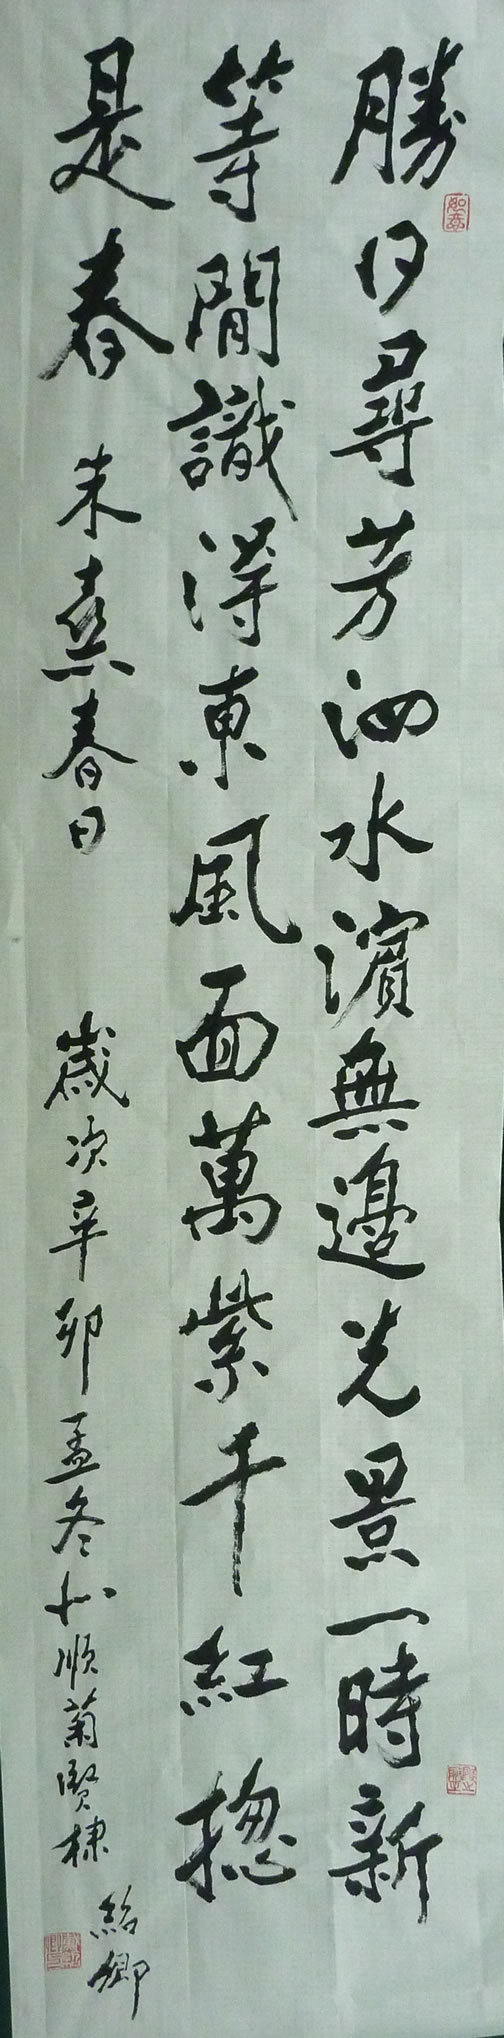 勝日尋芳泗水濱無邊光景一時新
如意
等閒識得東風面萬紫千紅摠
是春 朱熹春日 歲次辛卯孟冬以順菊賢棣
紹卿